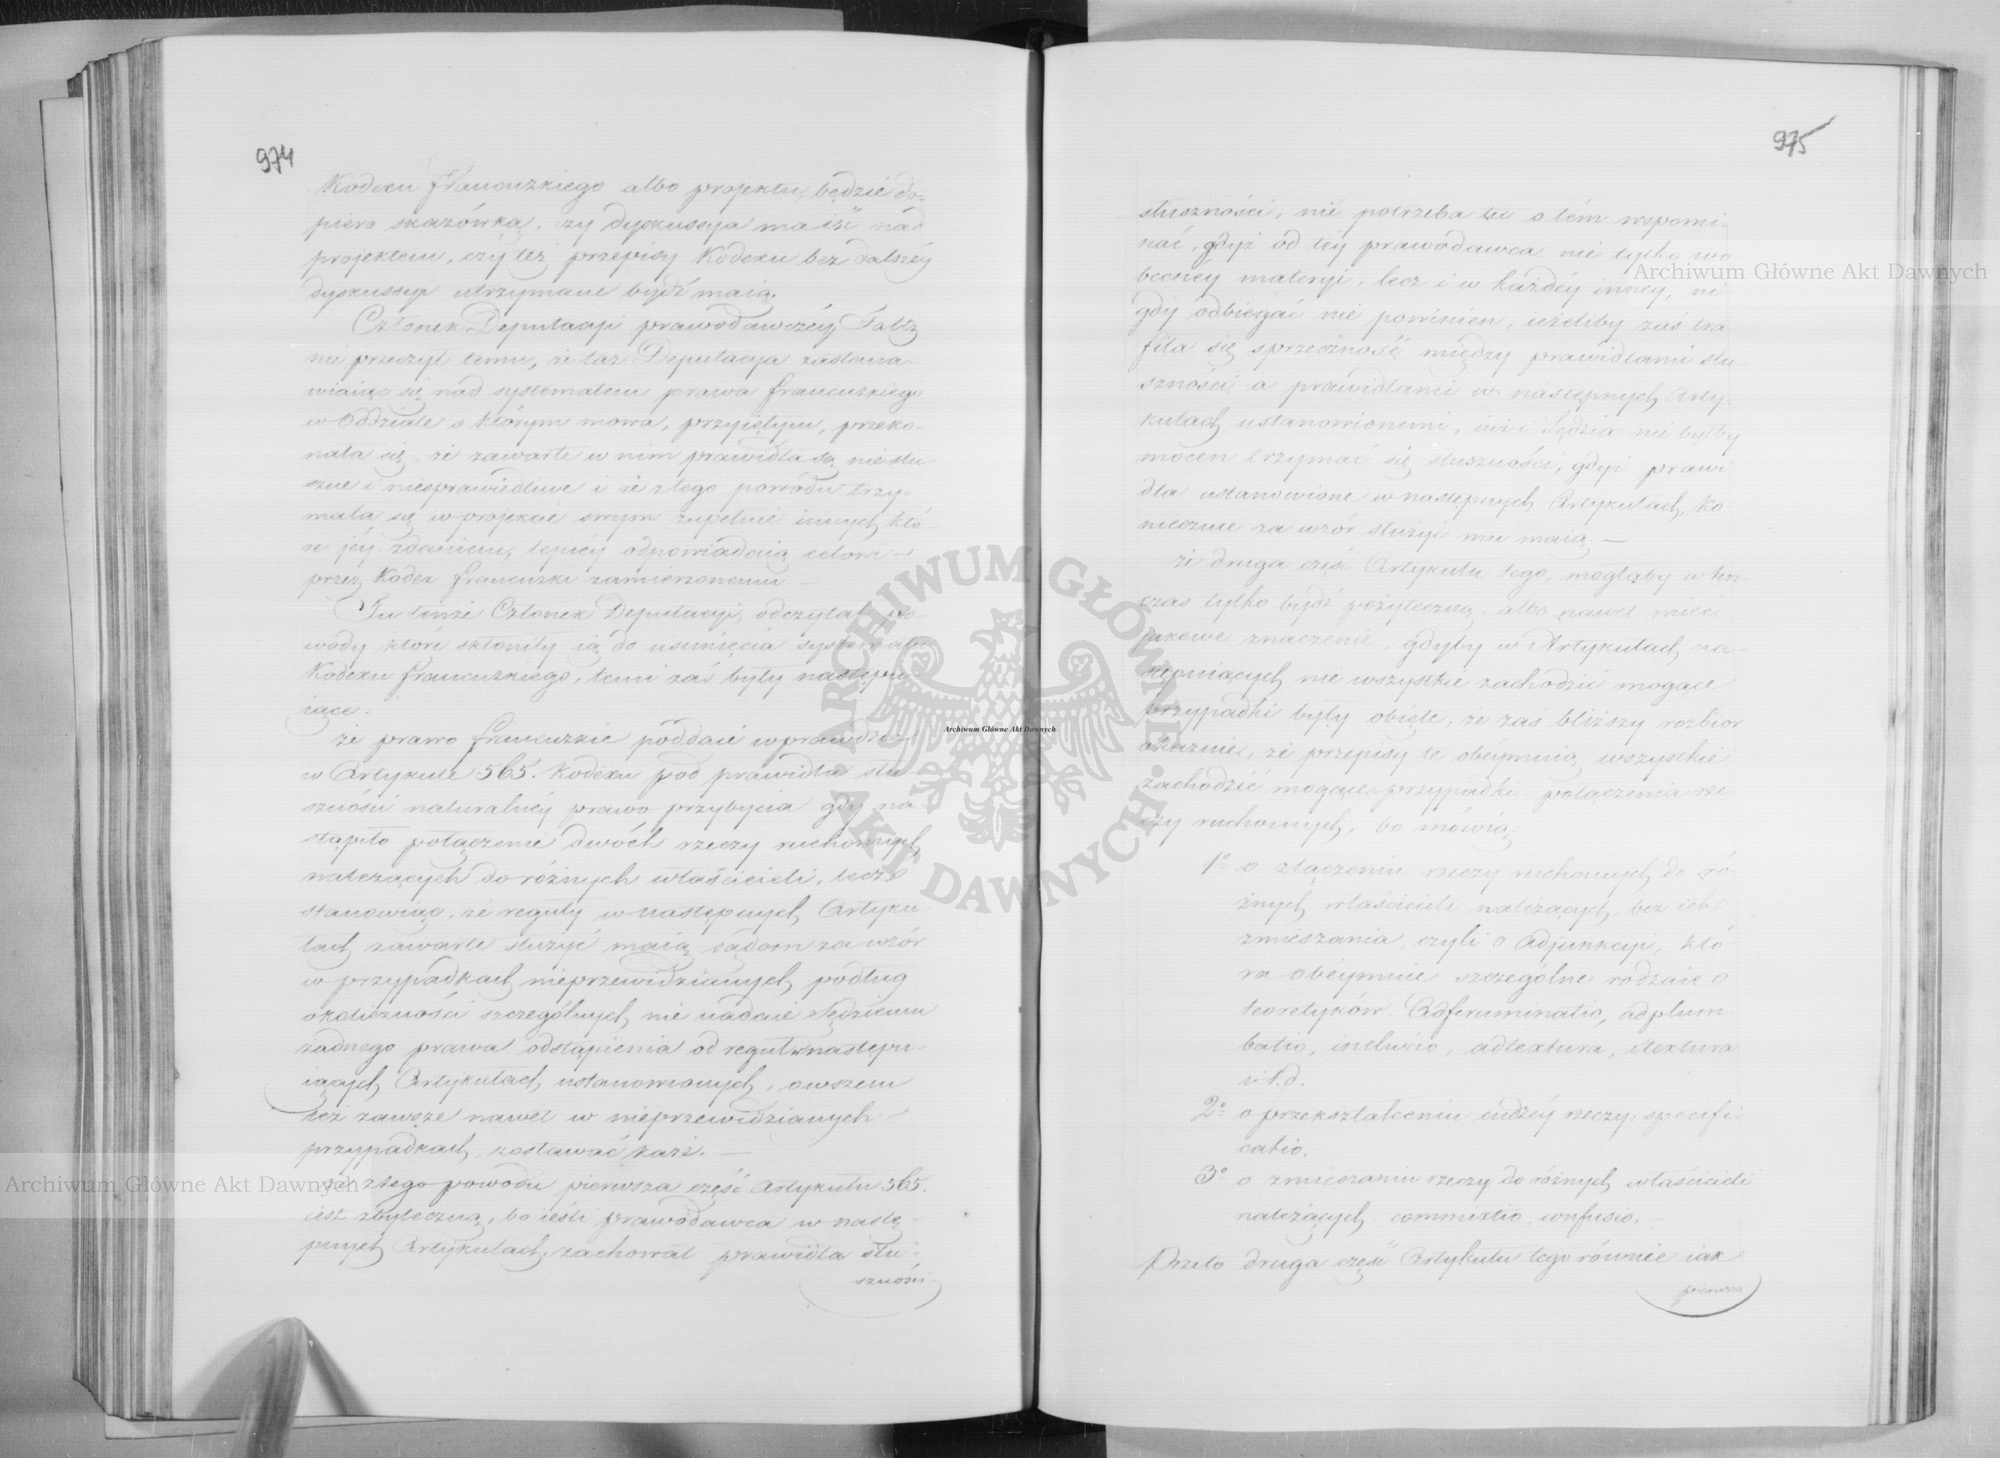 974
Kodexu francuzkiego albo projektu, będzie do-
piero skazówką, czy dyskussya ma iść nad
projektem, czy też przepisy Kodexu bez dalszéy
dyskussyi utrzymane bydź maią.
Członek Deputacyi prawodawczéy Faltz
nie przeczył temu, że taż Deputacya zastana-
wiaiąc się nad systematem prawa francuzkiego
w oddziale o którym mowa, przyiętym, przeko-
nała się, że zawarte w nim prawidła są niesłu-
szne i niesprawiedliwe i że z tego powodu trzy-
mała się w projekcie swym zupełnie innych, któ-
re jéy zdaniem, lepiéy odpowiadaią celowi
przez Kodex francuzki zamierzonemu —
Tu tenże Członek Deputacyi, odczytał po-
wody które skłoniły ią do usunięcia systematu
Kodexu francuzkiego, temi zaś były następu-
iące:
że prawo francuzkie poddaie wprawdzie
w Artykule 565. Kodexu pod prawidła słu-
szności naturalnéy prawo przybycia gdy na-
stąpiło połączenie dwóch rzeczy ruchomych
należących do różnych właścicieli, lecz
stanowiąc, że reguły w następnych Artyku-
łach zawarte służyć maią sądom za wzór
w przypadkach nieprzewidzianych, podług
okoliczności szczególnych, nie nadaie Sędziemu
żadnego prawa odstąpienia od reguł w następu-
iących Artykułach ustanowionych, owszem
też zawsze nawet w nieprzewidzianych
przypadkach zostawać każe. —
że z tego powodu pierwsza część Artykułu 565.
iest zbyteczną, bo ieśli prawodawca w nastę-
pnych Artykułach, zachował prawidła słu-
szności
975
słuszności, nie potrzeba tu o tém wspomi-
nać, gdyż od téy prawodawca nie tylko w o-
becnéy materyi, lecz i w każdéy innéy, ni-
gdy odbiegać nie powinien, ieżeliby zaś tra-
fiła się sprzeczność między prawidłami słu-
szności a prawidłami w następnych Arty-
kułach ustanowionemi, iuż i Sędzia nie byłby
mocen trzymać się słuszności, gdyż prawi-
dła ustanowione w następnych Artykułach, ko-
niecznie za wzór służyć mu maią. —
że druga część Artykułu tego, mogłaby w ten-
czas tylko bydź pożyteczną, albo nawet mieć
iakowe znaczenie, gdyby w Artykułach na-
stępuiących nie wszystkie zachodzić mogące
przypadki były obięte, że zaś bliższy rozbior
okazuie, że przepisy te obéymuią wszystkie
zachodzić mogące przypadki połączenia rze-
czy ruchomych, bo mówią:
1° o złączeniu rzeczy ruchomych do ró-
żnych właścicieli należących, bez ich
zmieszania, czyli o Adjunkcyi, któ-
ra obéymuie szczególne rodzaie
teoretyków: Adferruminatio, adplum-
batio, inclusio, adtextura, itextura
i t. d.
2° o przekształceniu cudzéy rzeczy: specifi-
catio.
3° o zmieszaniu rzeczy do różnych właścicieli
należących commixtio, confusio. —
Przeto druga część Artykułu tego równie iak
pierwsza
Archiwum Główne Akt Dawnych
Archiwum Główne Akt Dawnych
Archiwum Główne Akt Dawnych
ARCHIWUM GŁÓWNE AKT DAWNYCH